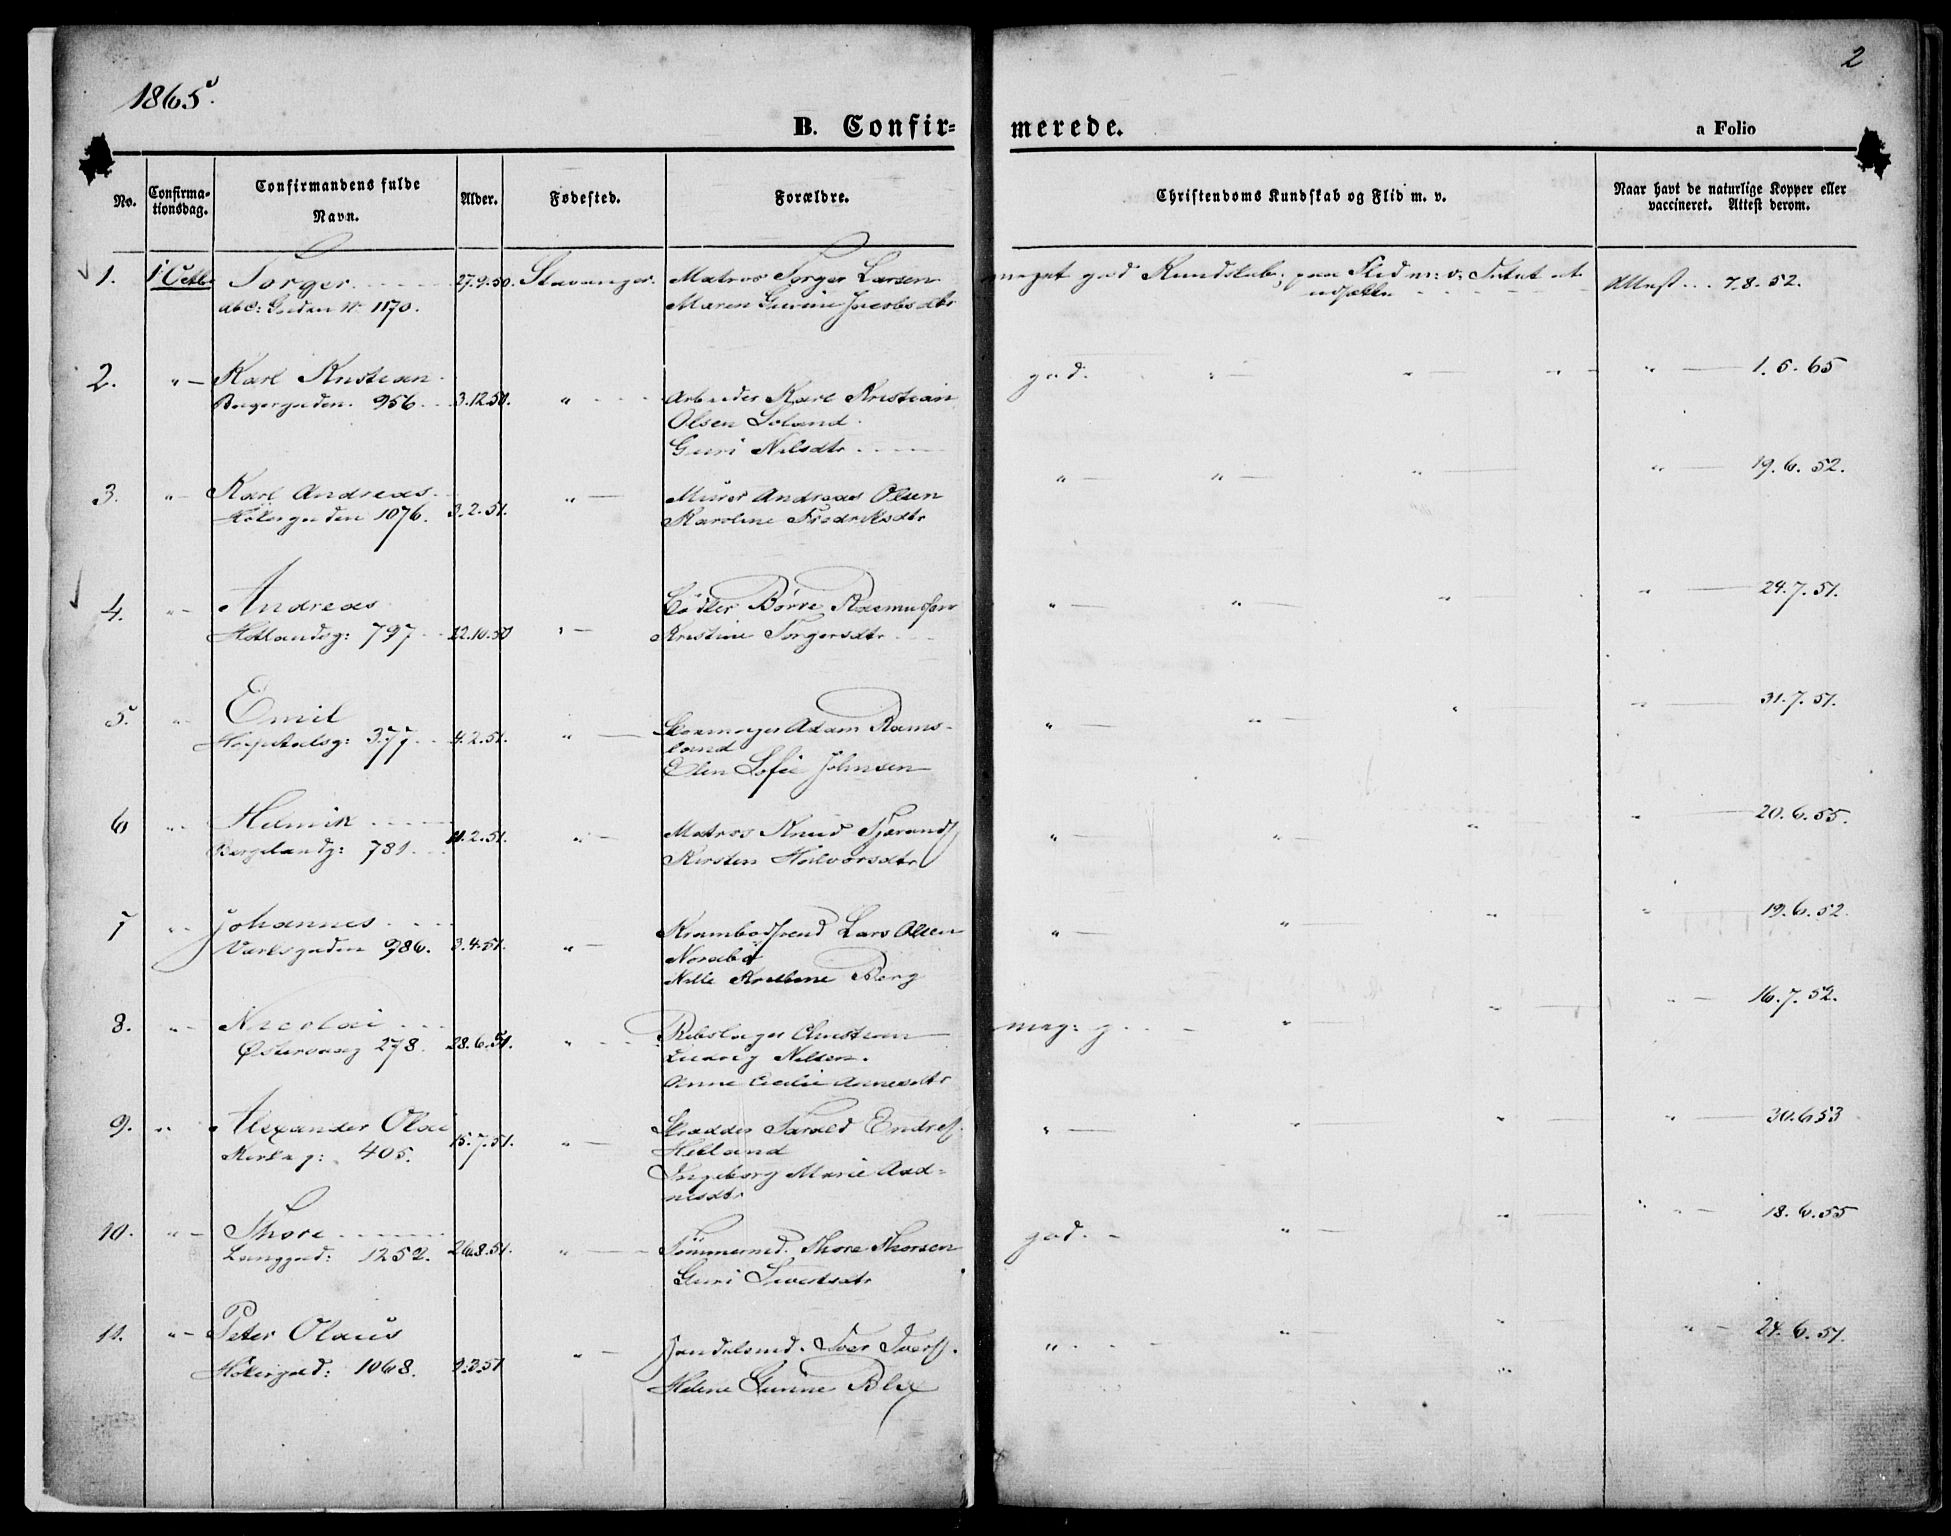 1865.
2
B. Confir= merede.
a Folio
No. Confirma-tionsdag. Confirmandens fulde Navn. Alder. Fødested. Forældre. Christendoms Kundskab og Flid m. v. Naar havt de naturlige Kopper eller vaccineret. Attest derom.
1. 1 Octb. Torger 27.9.50. Stavanger. Matros Torger Larsen meget god Kundskab; paa Flid m: v: Intet at Attest 7.8.52.
No 1170. Maren Gurine Jacobsdtr udsætte
2. "- Karl Kristian god. " " " " 1.5.65
Bagergaden. 956. 3.12.50. " Arbeider Karl Kristian
Olsen Soland.
Guri Nilsdtr
3. "- Karl Andreas " Murer Andreas Olsen " " " " 19.6.52.
Høkergaden 1076. 3.2.51. Karoline Fredriksdtr
4. "- Andreas Bødker Børre Rasmussen " " " " 24.7.51.
Hetlandsg: 797 12.10.50 "- Kristine Torgersdtr
5. " Emil " " " " 31.7.51.
Hospitalsg: 377 4.2.51. " Skomager Adam Rams-
land
Elen Sofie Johnsen
6 " Helmik " " " " 20.6.55.
Bergelandg: 781 11.2.51. "- Matros Knud Tjerands
Kirsten Halvorsdtr
7 " Johannes " " " " 19.6.52.
Værksgaden 986. 3.4.51. "- Krambodsvend Lars Olsen
Nordbø
Berg
8. "- Nicolai meg: g " " " 16.7.52.
Østervaag 278. 28.6.51. " Rebslager Christian
Ludvig Nilsen.
Anne Cecilie
9. " Alexander Olai 15.7.51. " Skrædder Tarald Endres. " " " " 30.6.53
Kirkeg: 405. Hetland
Ingeborg Marie Aad=
nesdtr
10. "- Thore 26.8.51. " Tømmermd. Thore Thorsen god. " " " 18.6.55
Langgad: 1252. Guri Sivertsdtr
11. "- Peter Olaus " " " " 24.6.51.
Høkergad: 1068. 9.3.51 "- Handelsmd. Iver Ivers.
Helene Gurine Blix